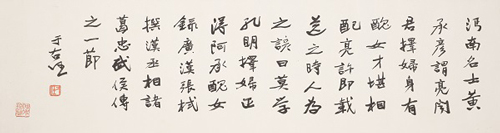 沔南名士黄
承彦謂亮聞
君擇婦身有
醜女才堪相
配亮許即載
送之時人為
之諺曰莫學
孔明擇婦正
得阿承醜女
錄廣漢張栻
撰漢丞相諸
葛忠武侯傳
之一節
于右任